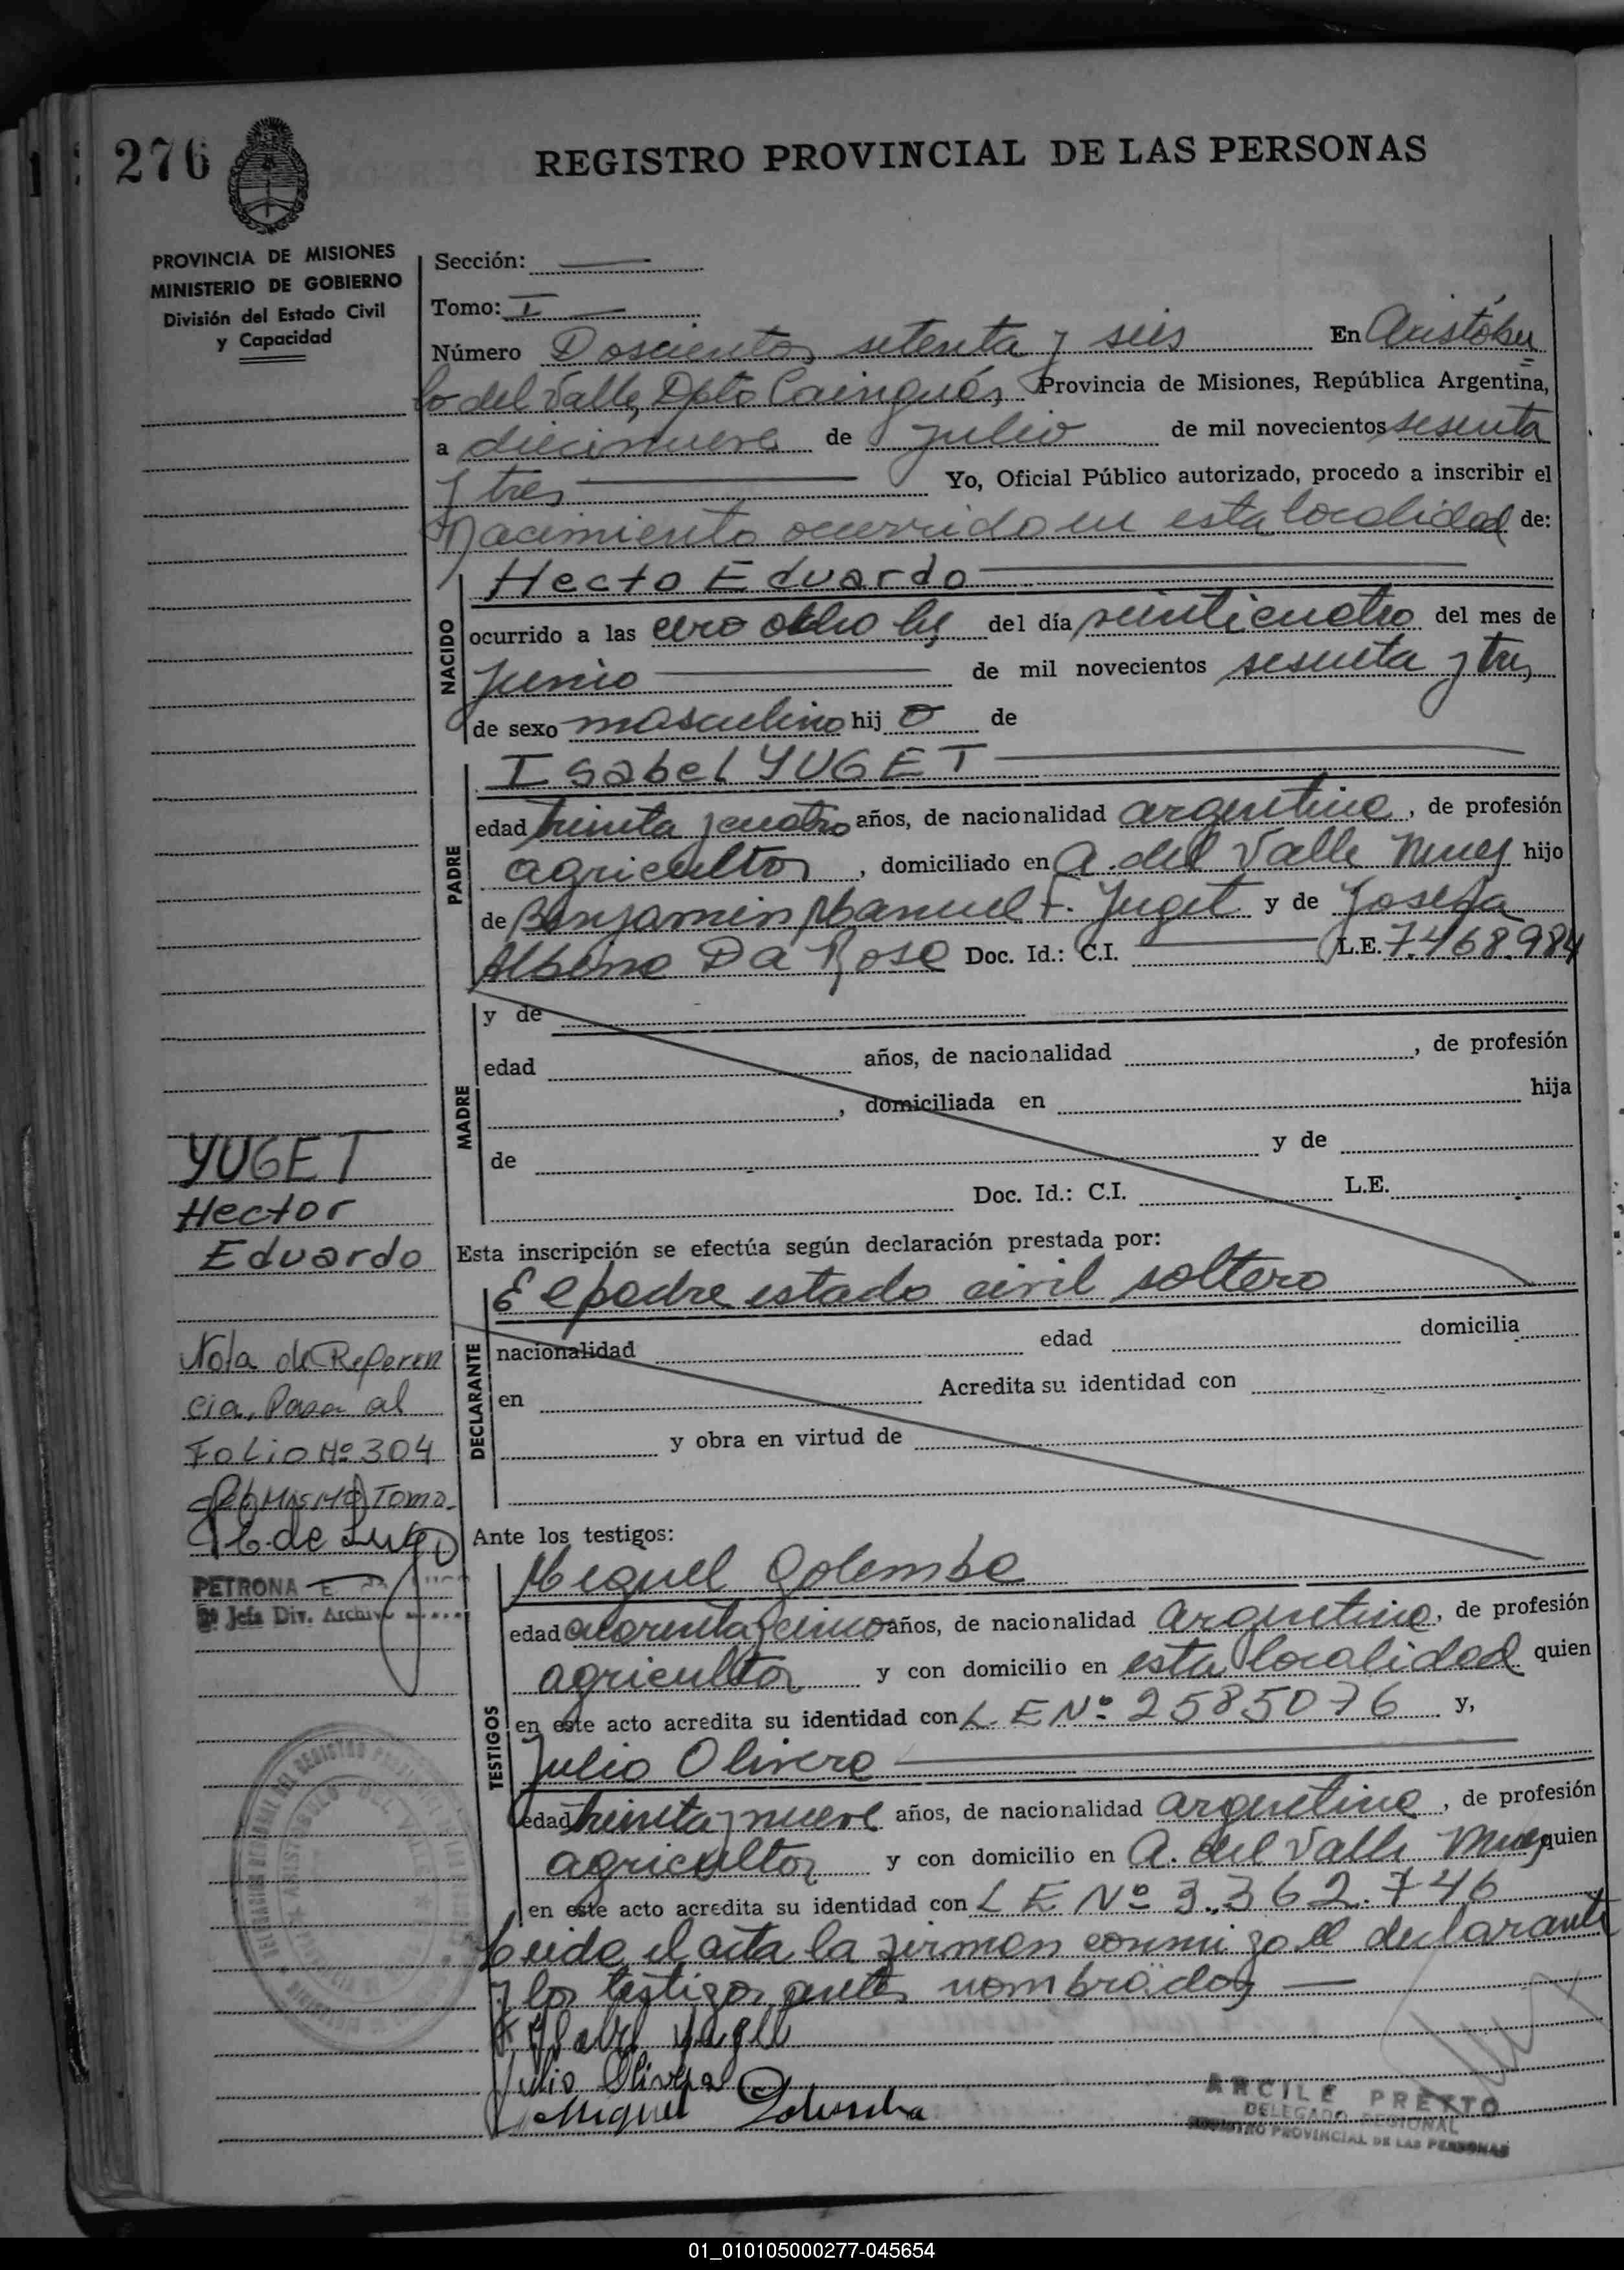 276
REGISTRO PROVINCIAL DE LAS PERSONAS
PROVINCIA DE MISIONES
MINISTERIO DE GOBIERNO
División del Estado Civil
y Capacidad
Sección:
Tomo: I
Número Doscientos setenta y seis En Aristóbu
lo del Valle, Dpto Cainguás Provincia de Misiones, República Argentina,
a diecinueve de julio de mil novecientos sesenta
y tres Yo, Oficial Público autorizado, procedo a inscribir el
Nacimiento ocurrido en esta localidad de:
NACIDO
Hecto Eduardo
ocurrido a las cero ocho hs del día veinticuatro del mes de
junio de mil novecientos sesenta y tres
de sexo masculino hij o de
PADRE
Isabel YUGET
edad treinta y cuatro años, de nacionalidad argentina, de profesión
agricultor, domiciliado en A. del Valle Mnes hijo
de Benjamin Manuel F. Yuget y de Josefa
Albina Da Rosa Doc. Id.: C.I. L.E. 7.468.984
MADRE
y de
edad años, de nacionalidad , de profesión
, domiciliada en hija
de y de
Doc. Id.: C.I. L.E.
Esta inscripción se efectúa según declaración prestada por:
DECLARANTE
El padre estado civil soltero
nacionalidad edad domicilia
en Acredita su identidad con
y obra en virtud de
Ante los testigos:
TESTIGOS
Miguel Golembe
edad cuarenta y cinco años, de nacionalidad argentina, de profesión
agricultor y con domicilio en esta localidad quien
en este acto acredita su identidad con L. E Nº 2585076 y,
Julio Olivera
edad treinta y nueve años, de nacionalidad argentina, de profesión
agricultor y con domicilio en A. del Valle Mnes quien
en este acto acredita su identidad con L E Nº 3.362.746
Leida el acta la firman conmigo el declarante
y los testigos antes nombrados
Isabel Yuget
Julio Olivera
Miguel
ARCILE PRETTO
DELEGADO REGIONAL
REGISTRO PROVINCIAL DE LAS PERSONAS
YUGET
Hector
Eduardo
Nota de Referen
cia, Pasa al
Folio Nº 304
del Mismo Tomo.
E. de Lugo
PETRONA E. de LUGO
2ª Jefa Div. Archivo
01_010105000277-045654